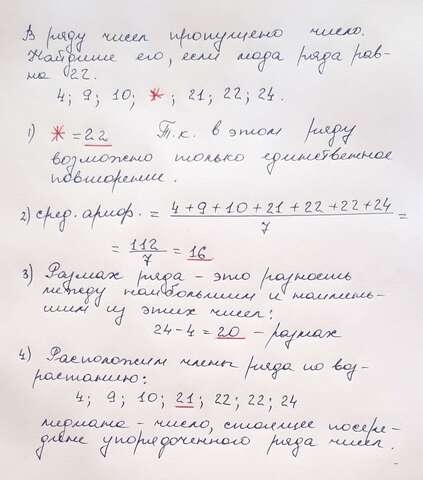 В ряду чисел пропущено число.
Найдите его, если мода ряда рав-
на 22.
4; 9; 10; *; 21; 22; 24.
1) * = 22 Т.к. в этом ряду
возможно только единственное
повторение.
2) сред. ариф. = 4 + 9 + 10 + 21 + 22 + 22 + 24 / 7 =
= 112 / 7 = 16
3) Размах ряда - это разность
между наибольшим и наимень-
шим из этих чисел:
24 - 4 = 20 - размах
4) Расположим члены ряда по воз-
растанию:
4; 9; 10; 21; 22; 22; 24
медиана - число, стоящее посере-
дине упорядоченного ряда чисел.